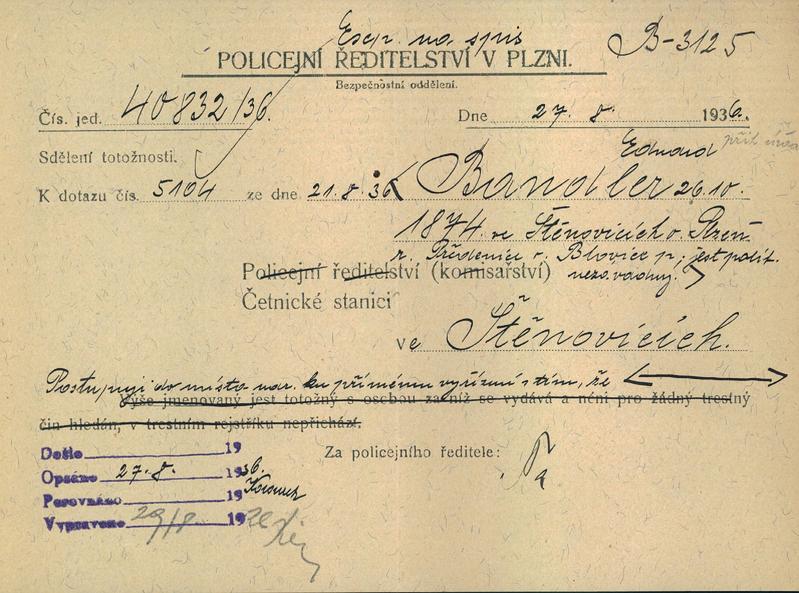 Exp. na spis
B-3125
POLICEJNÍ ŘEDITELSTVÍ V PLZNI.
Bezpečnostní oddělení.
Čís. jed. 40832/36. Dne 27. 8. 1936.
Sdělení totožnosti. Eduard
K dotazu čís. 5104 ze dne 21.8.36 Bandler 26.10.
1874 ve Štěnovicích o. Plzeň
Předenice o. Blovice p., jest polit.
Policejní ředitelství (komisařství) nezávadný.
Četnické stanici
ve Štěnovicích.
Postupuji do místa nar. ku přímému vyřízení s tím, že
Výše jmenovaný jest totožný s osobou za níž se vydává a není pro žádný trestný
čin hledán, v trestním rejstříku nepřichází.
Došlo 19
Za policejního ředitele:
Opsáno 27. 8. 1936.
Porovnáno 19
Vypraveno 29/8 19